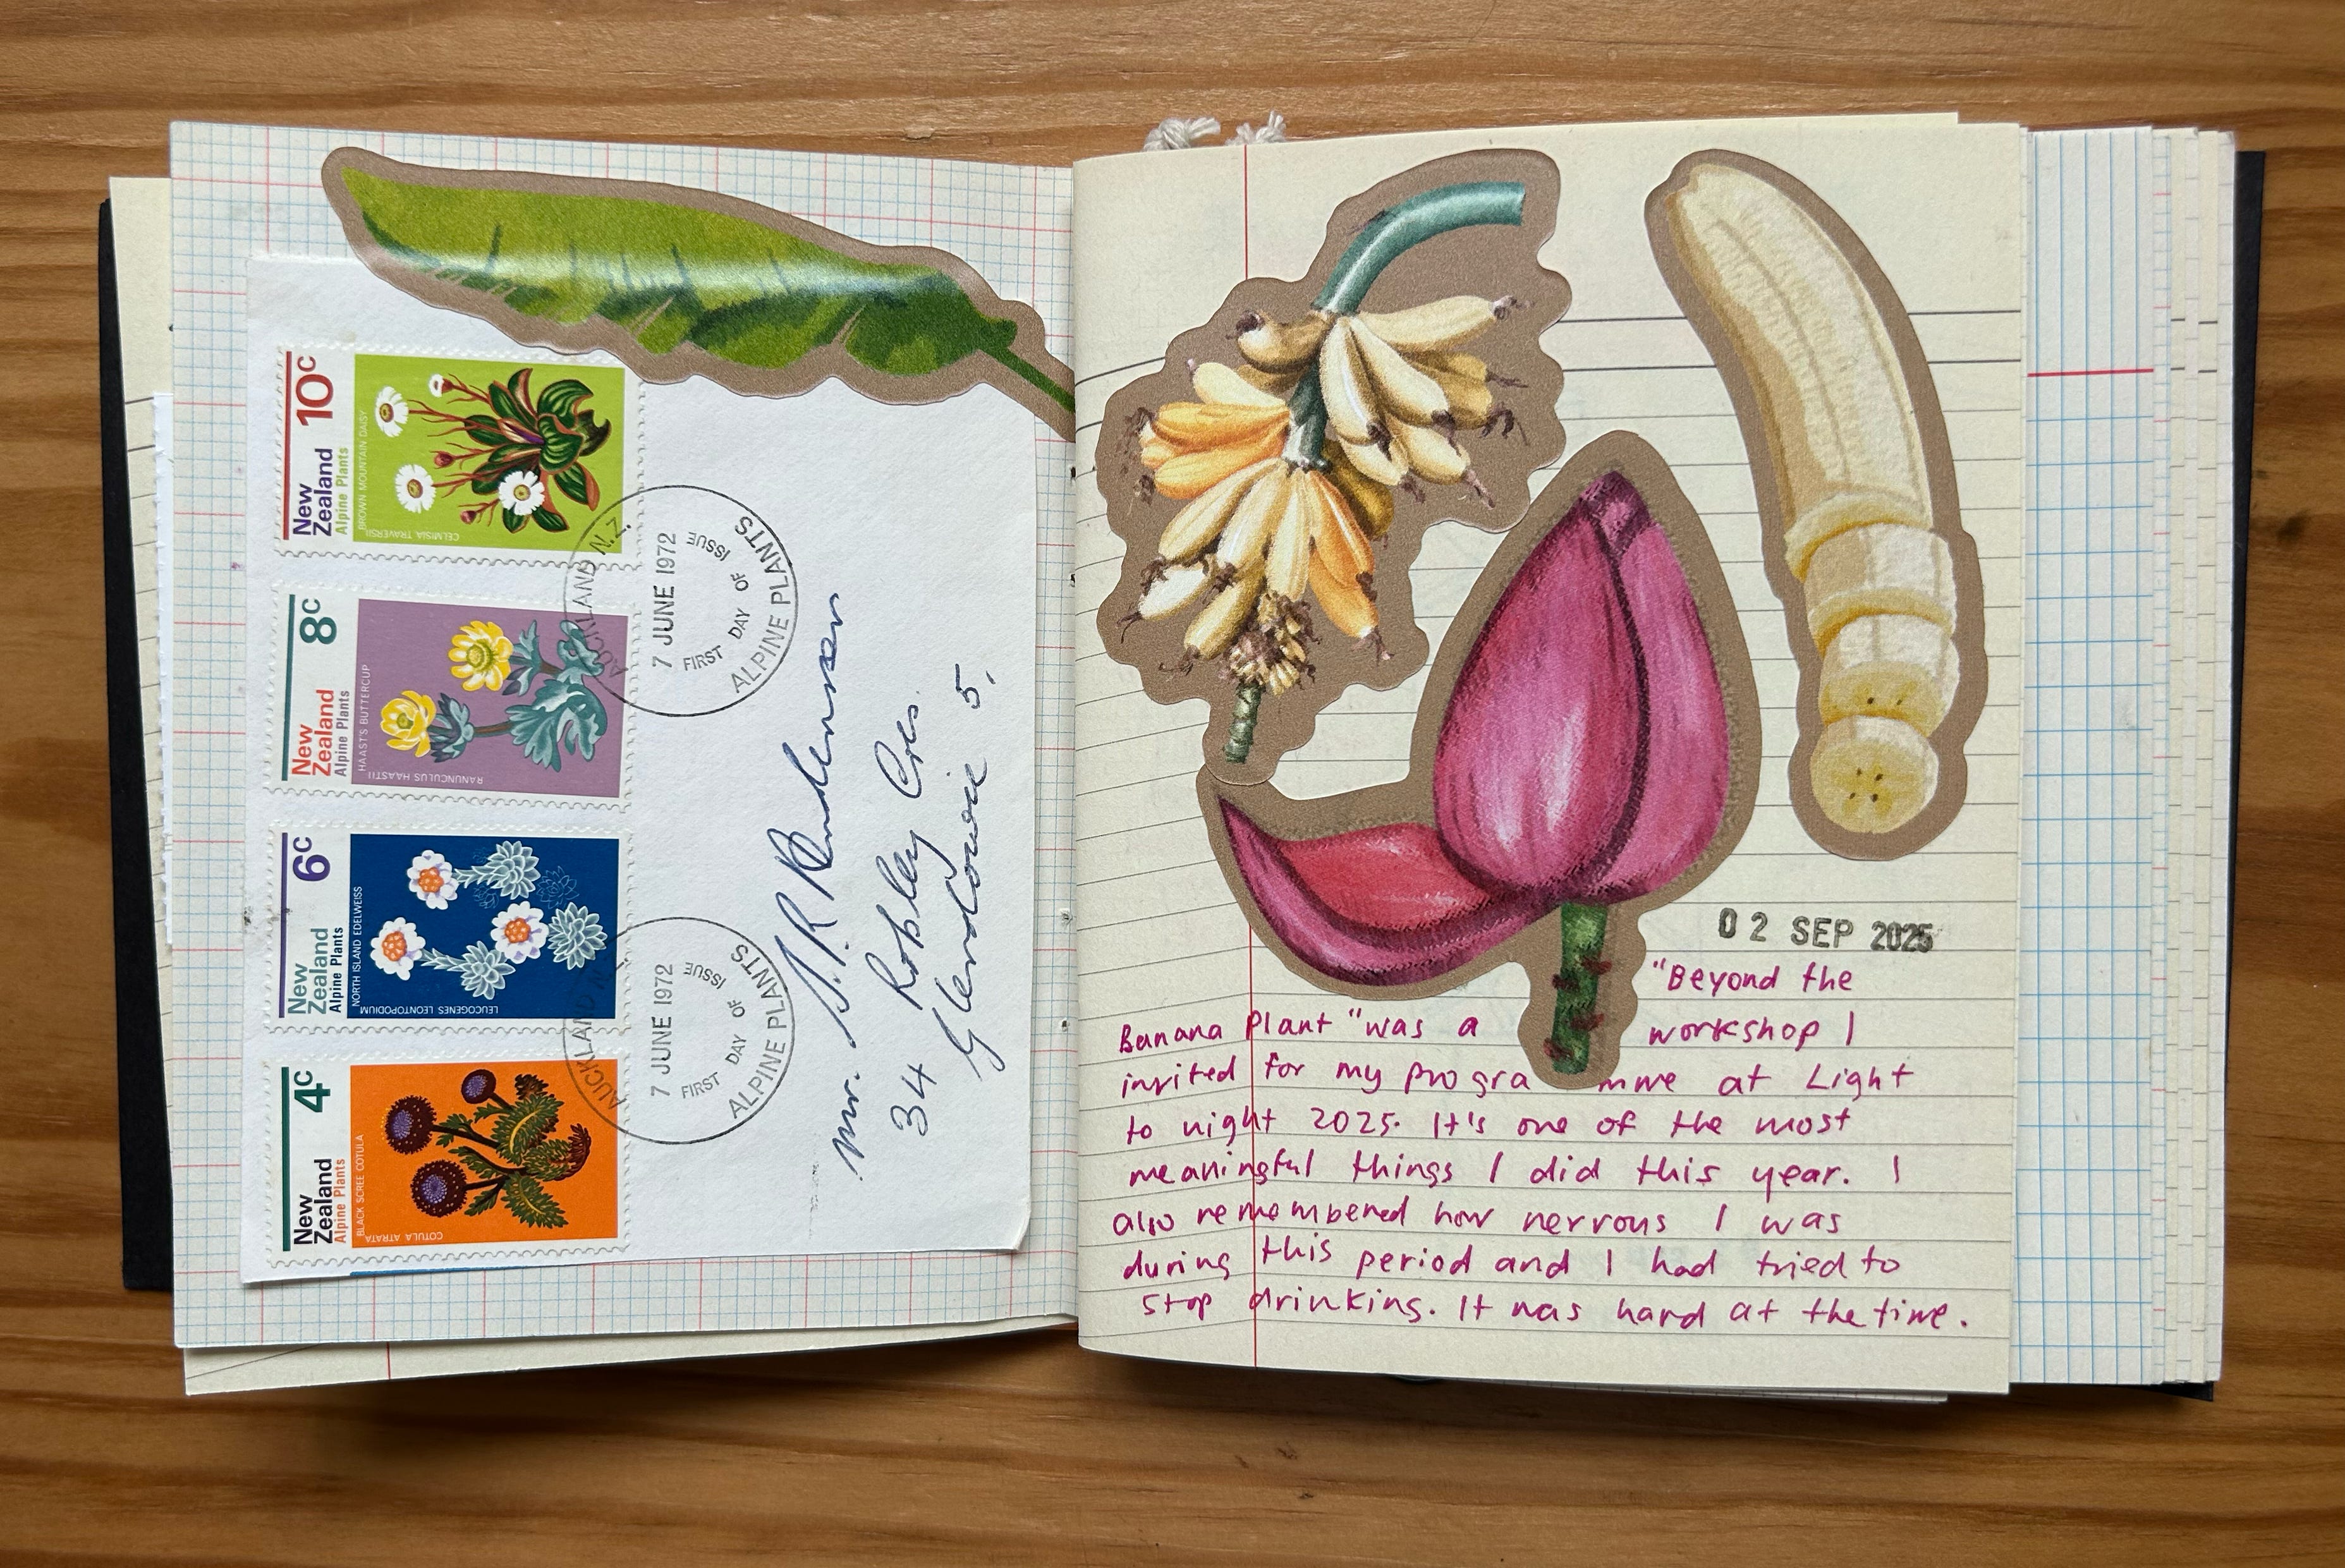 10c
New
Zealand
Alpine Plants
BROWN MOUNTAIN DAISY
CELMISIA TRAVERSII
8c
New
Zealand
Alpine Plants
HAAST'S BUTTERCUP
RANUNCULUS HAASTII
6c
New
Zealand
Alpine Plants
NORTH ISLAND EDELWEISS
LEUCOGENES LEONTOPODIUM
4c
New
Zealand
Alpine Plants
BLACK SCREE COTULA
COTULA ATRATA
AUCKLAND N.Z.
7 JUNE 1972
FIRST DAY OF ISSUE
ALPINE PLANTS
AUCKLAND N
7 JUNE 1972
FIRST DAY OF ISSUE
ALPINE PLANTS
Mr. S. R.
34 Robley Cres.
Glendowie 5.
02 SEP 2025
"Beyond the
Banana Plant" was a workshop I
invited for my programme at Light
to night 2025. It's one of the most
meaningful things I did this year. I
also remembered how nervous I was
during this period and I had tried to
stop drinking. It was hard at the time.